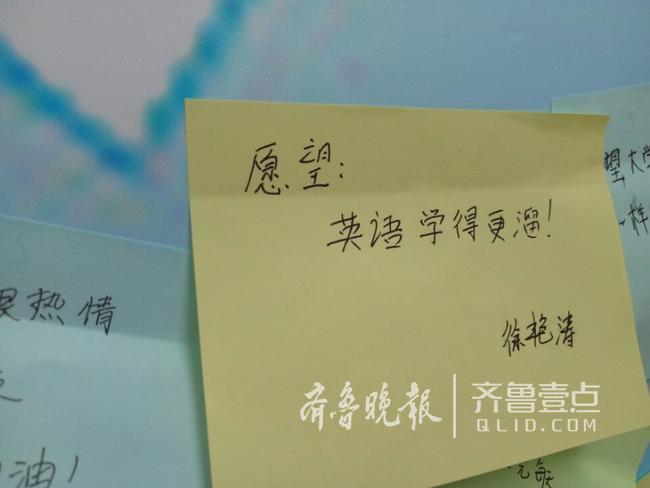 愿望:
英语学得更溜!
徐艳涛
望大学
一样
热情
油!
齐鲁晚报
齐鲁壹点
QLID.COM